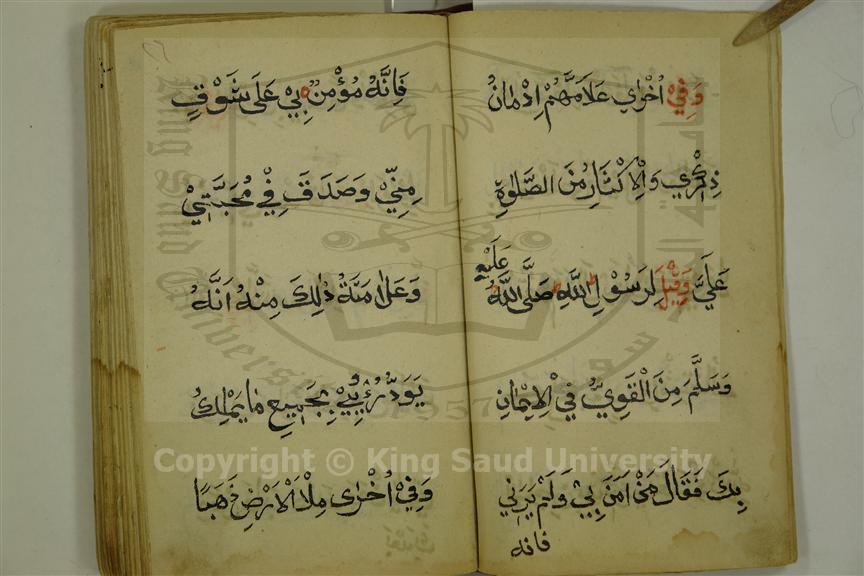 وَفِيْ اُخْرٰى عَلَامَتُهُمْ اِدْمَانُ
ذِكْرِيْ وَالْاِكْثَارُ مِنَ الصَّلٰوةِ
عَلَيَّ وَقِيْلَ لِرَسُوْلِ اللّٰهِ صَلَّى اللّٰهُ عَلَيْهِ
وَسَلَّمَ مَنِ الْقَوِيُّ فِي الْاِيْمَانِ
بِكَ فَقَالَ مَنْ اٰمَنَ بِيْ وَلَمْ يَرَنِيْ
فانه
فَاِنَّهُ مُؤْمِنٌ بِيْ عَلَى شَوْقٍ
مِنِّيْ وَصَدَقَ فِيْ مُحَبَّتِيْ
وَعَلَامَةُ ذٰلِكَ مِنْهُ اَنَّهُ
يَوَدُّ رُؤْيَتِيْ بِجَمِيْعِ مَا يَمْلِكُ
وَفِيْ اُخْرٰى مِلْأَ الْاَرْضِ ذَهَبًا
Copyright © King Saud University
King Saud University
1957